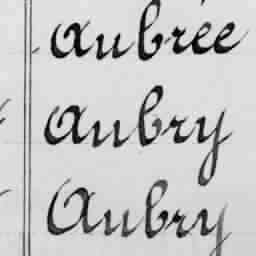 Aubrée
Aubry
Aubry